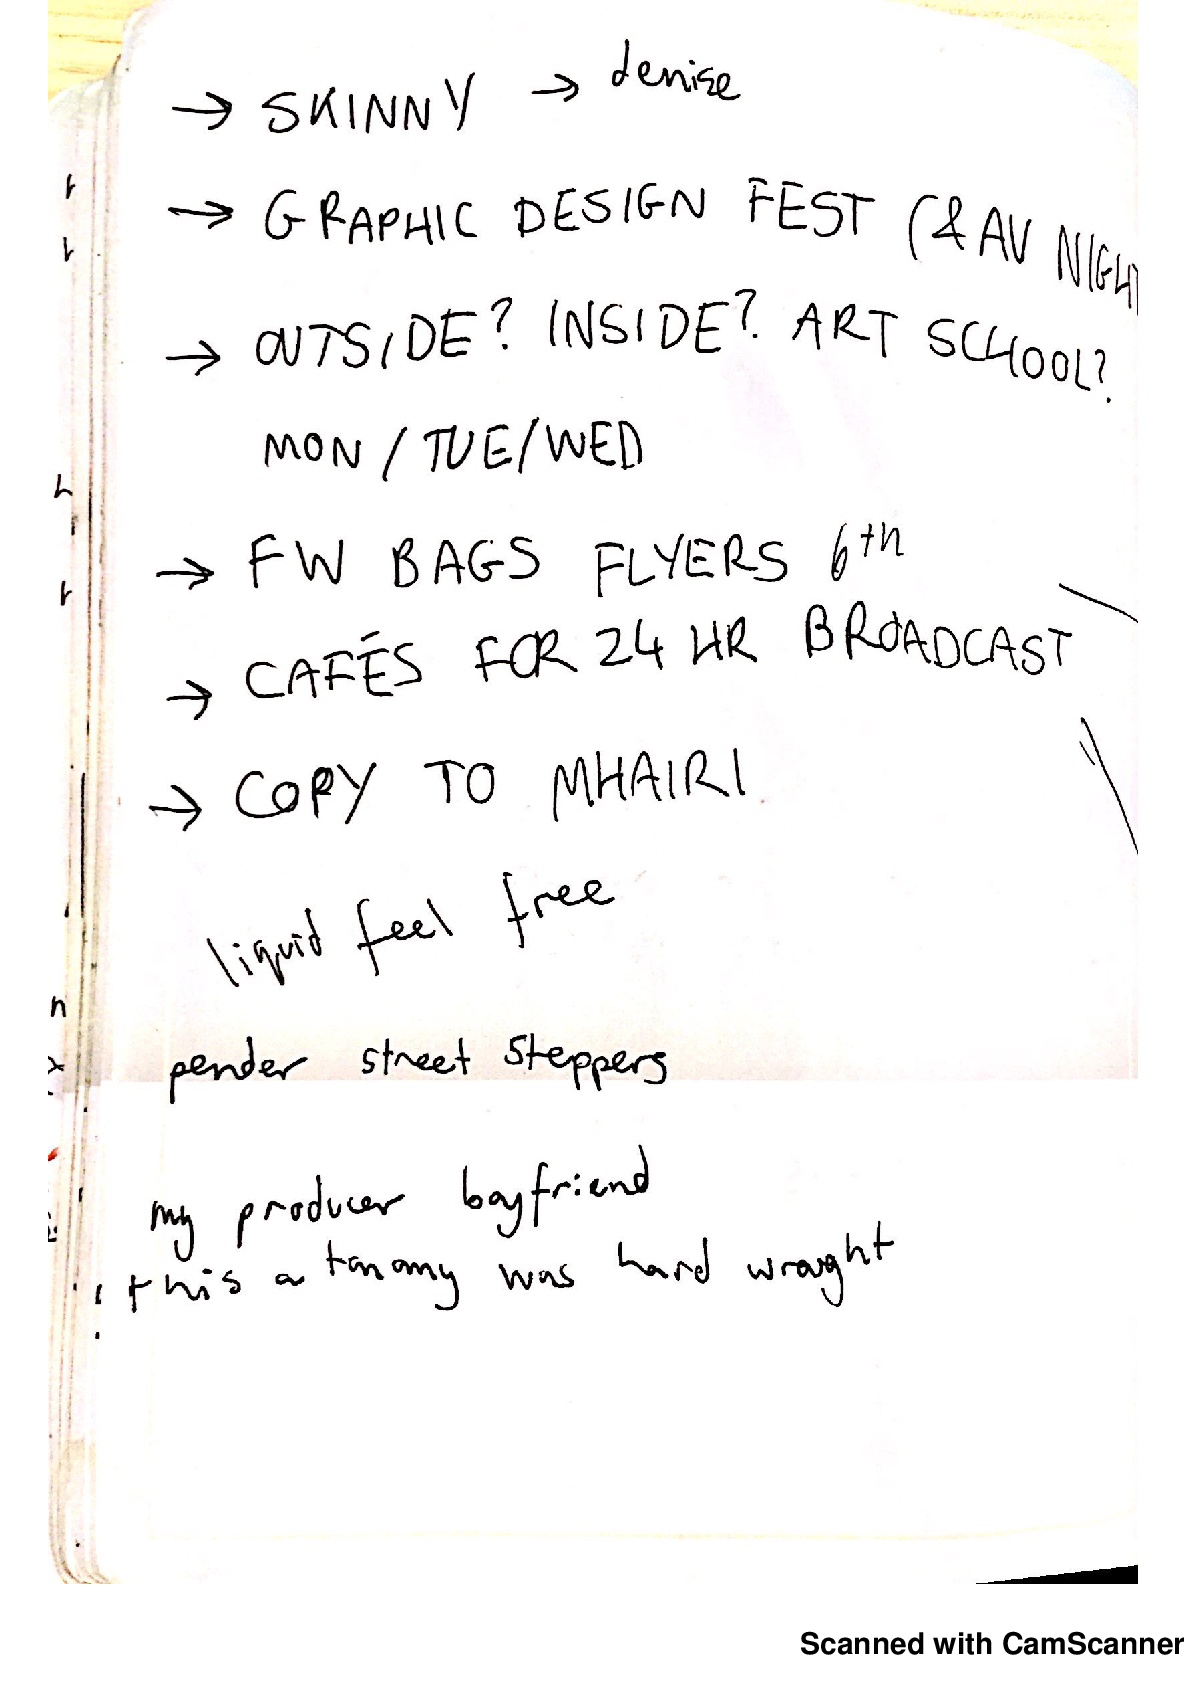 → SKINNY → denise
→ GRAPHIC DESIGN FEST (& AV NIGHT
→ OUTSIDE? INSIDE? ART SCHOOL?
MON / TUE / WED
→ FW BAGS FLYERS 6th
→ CAFÉS FOR 24 HR BROADCAST
→ COPY TO MHAIRI
liquid feel free
pender street steppers
my producer boyfriend
this a was hard wraght
Scanned with CamScanner